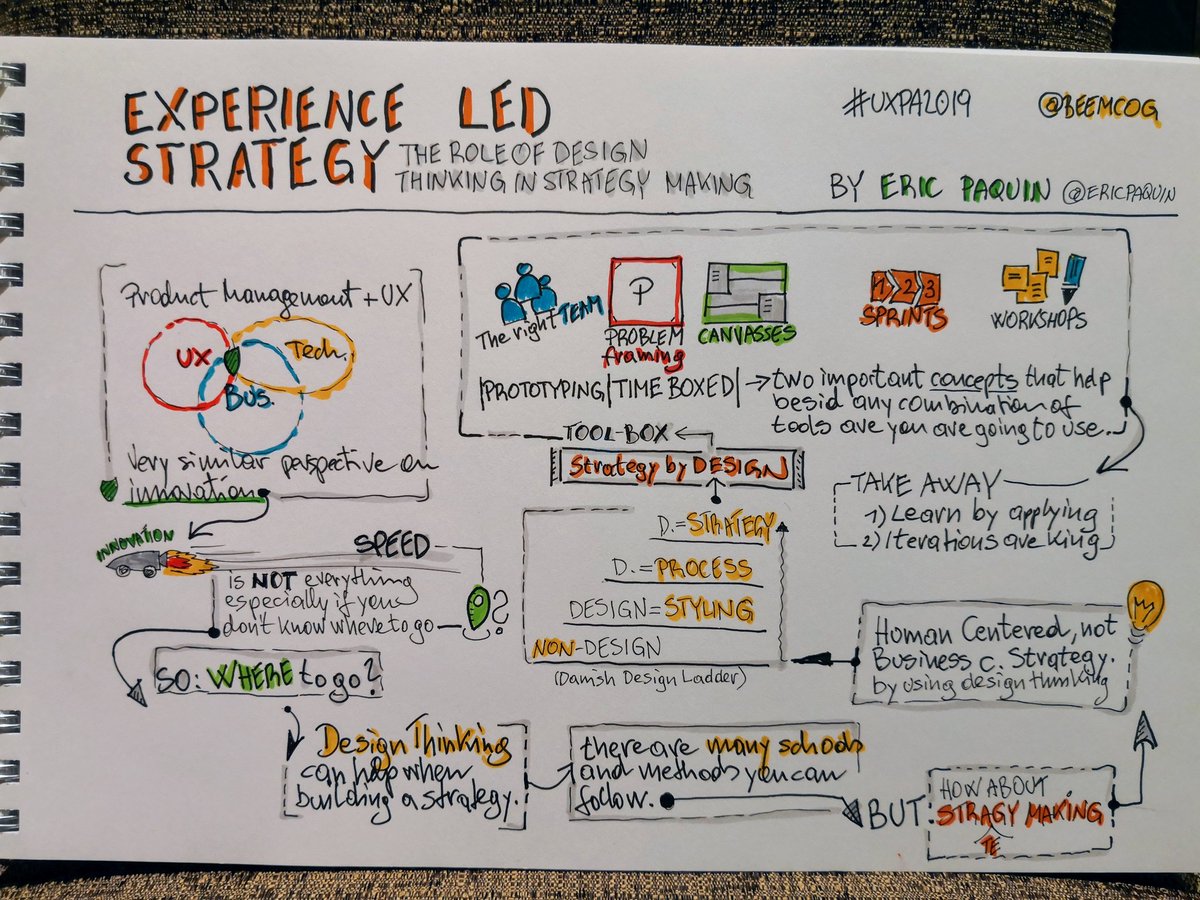 EXPERIENCE LED
STRATEGY
THE ROLE OF DESIGN
THINKING IN STRATEGY MAKING
#UXPA2019
@BEEMCOG
BY ERIC PAQUIN @ERICPAQUIN
Product Management + UX
UX
Tech.
Bus.
Very similar perspective on
innovation
INNOVATION
SPEED
is NOT everything
especially if you
don't know where to go
?
SO: WHERE to go?
Design Thinking
can help when
building a strategy.
there are many schools
and methods you can
follow.
BUT:
HOW ABOUT
STRAGY MAKING
TE
Human Centered, not
Business c. Strategy.
by using design thinking
D.=STRATEGY
D.=PROCESS
DESIGN=STYLING
NON-DESIGN
(Danish Design Ladder)
Strategy by DESIGN
TOOL-BOX
The right TEAM
P
PROBLEM
framing
CANVASSES
1 2 3
SPRINTS
WORKSHOPS
|PROTOTYPING|TIME BOXED|
two important concepts that help
besid any combination of
tools are you are going to use.
TAKE AWAY
1) Learn by applying
2) Iterations are king